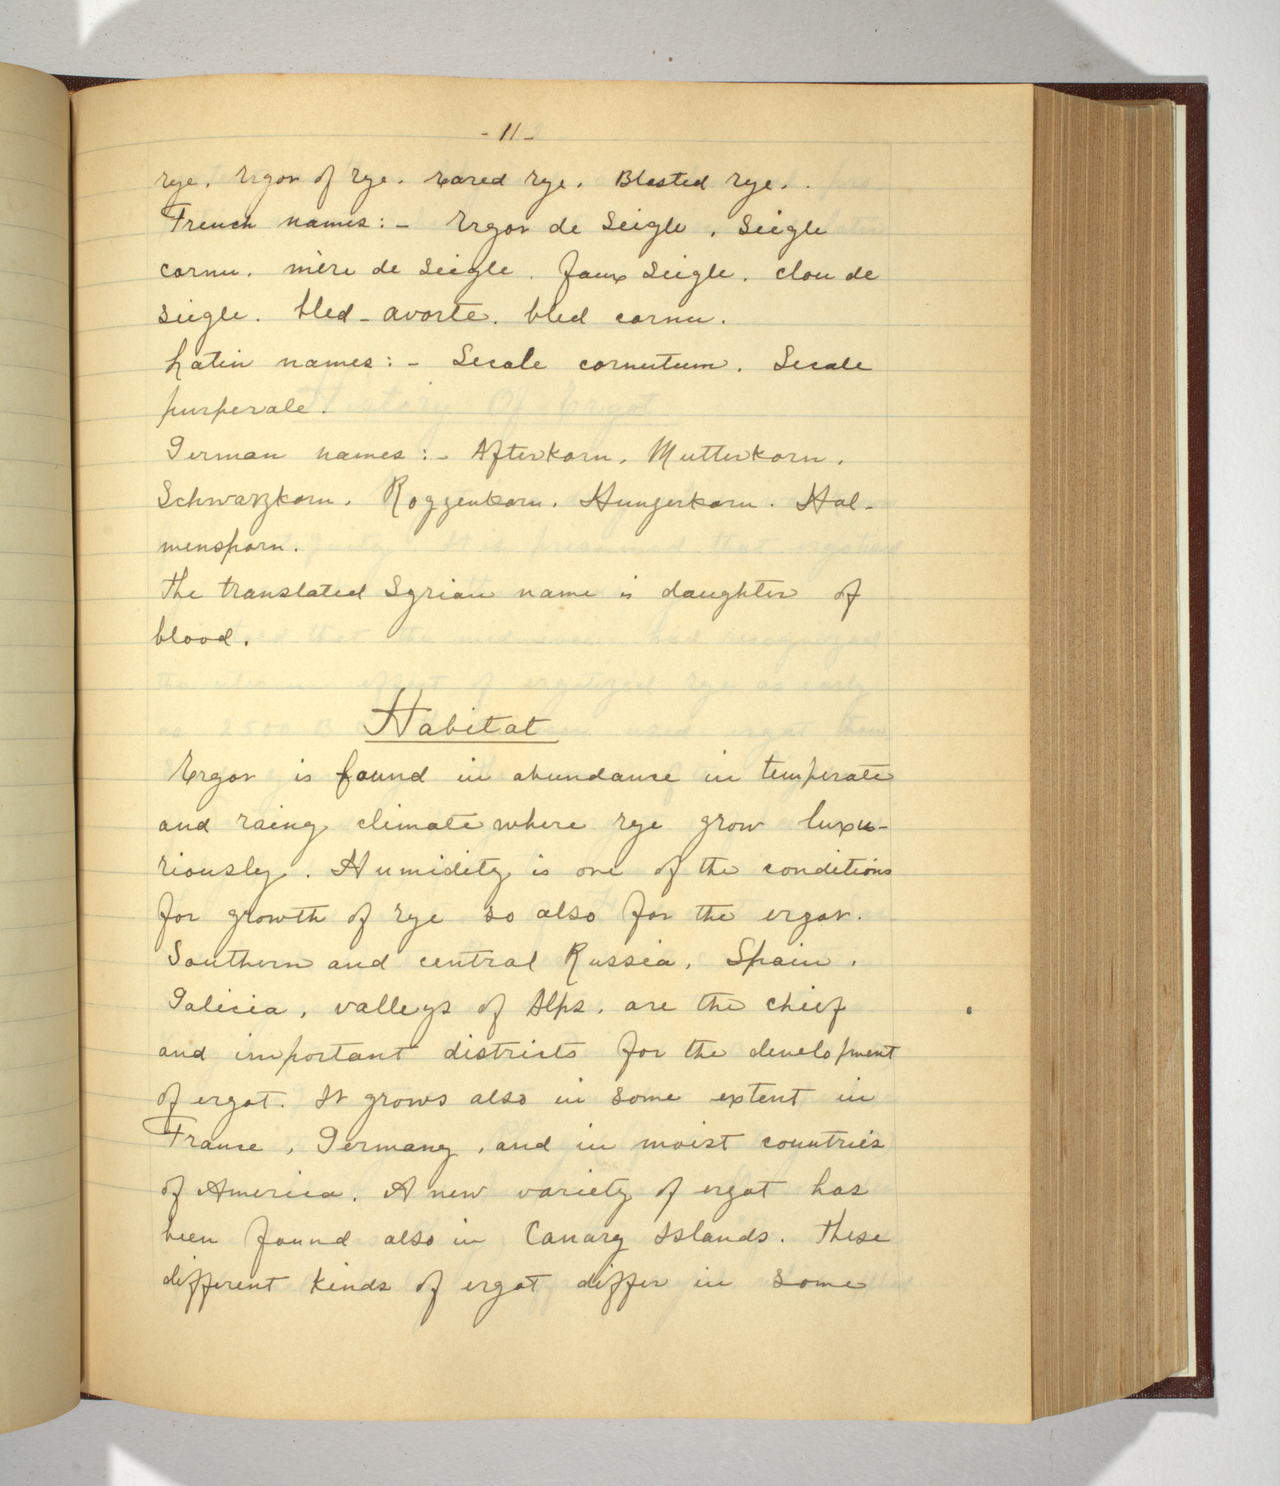 - 11 -
rye. Ergot of Rye. Eared rye. Blasted rye.
French names: - Ergot de Seigle, Seigle
cornu. mère de Seigle. faux Seigle. clou de
siegle. bled-avorte. bled cornu.
Latin names: - Secale cornutum. Secale
purperale.
German names: - Afterkorn. Mutterkorn.
Schwarzkorn. Roggenkorn. Hungerkorn. Hal-
mensporn.
The translated Syrian name is daughter of
blood.
Habitat
Ergot is found in abundance in temperate
and rainy climate where rye grow luxu-
riously. Humidity is one of the conditions
for growth of rye so also for the ergot.
Southern and central Russia, Spain,
Galicia, valleys of Alps, are the chief
and important districts for the development
of ergot. It grows also in some extent in
France, Germany, and in moist countries
of America. A new variety of ergot has
been found also in Canary Islands. These
different kinds of ergot differ in some